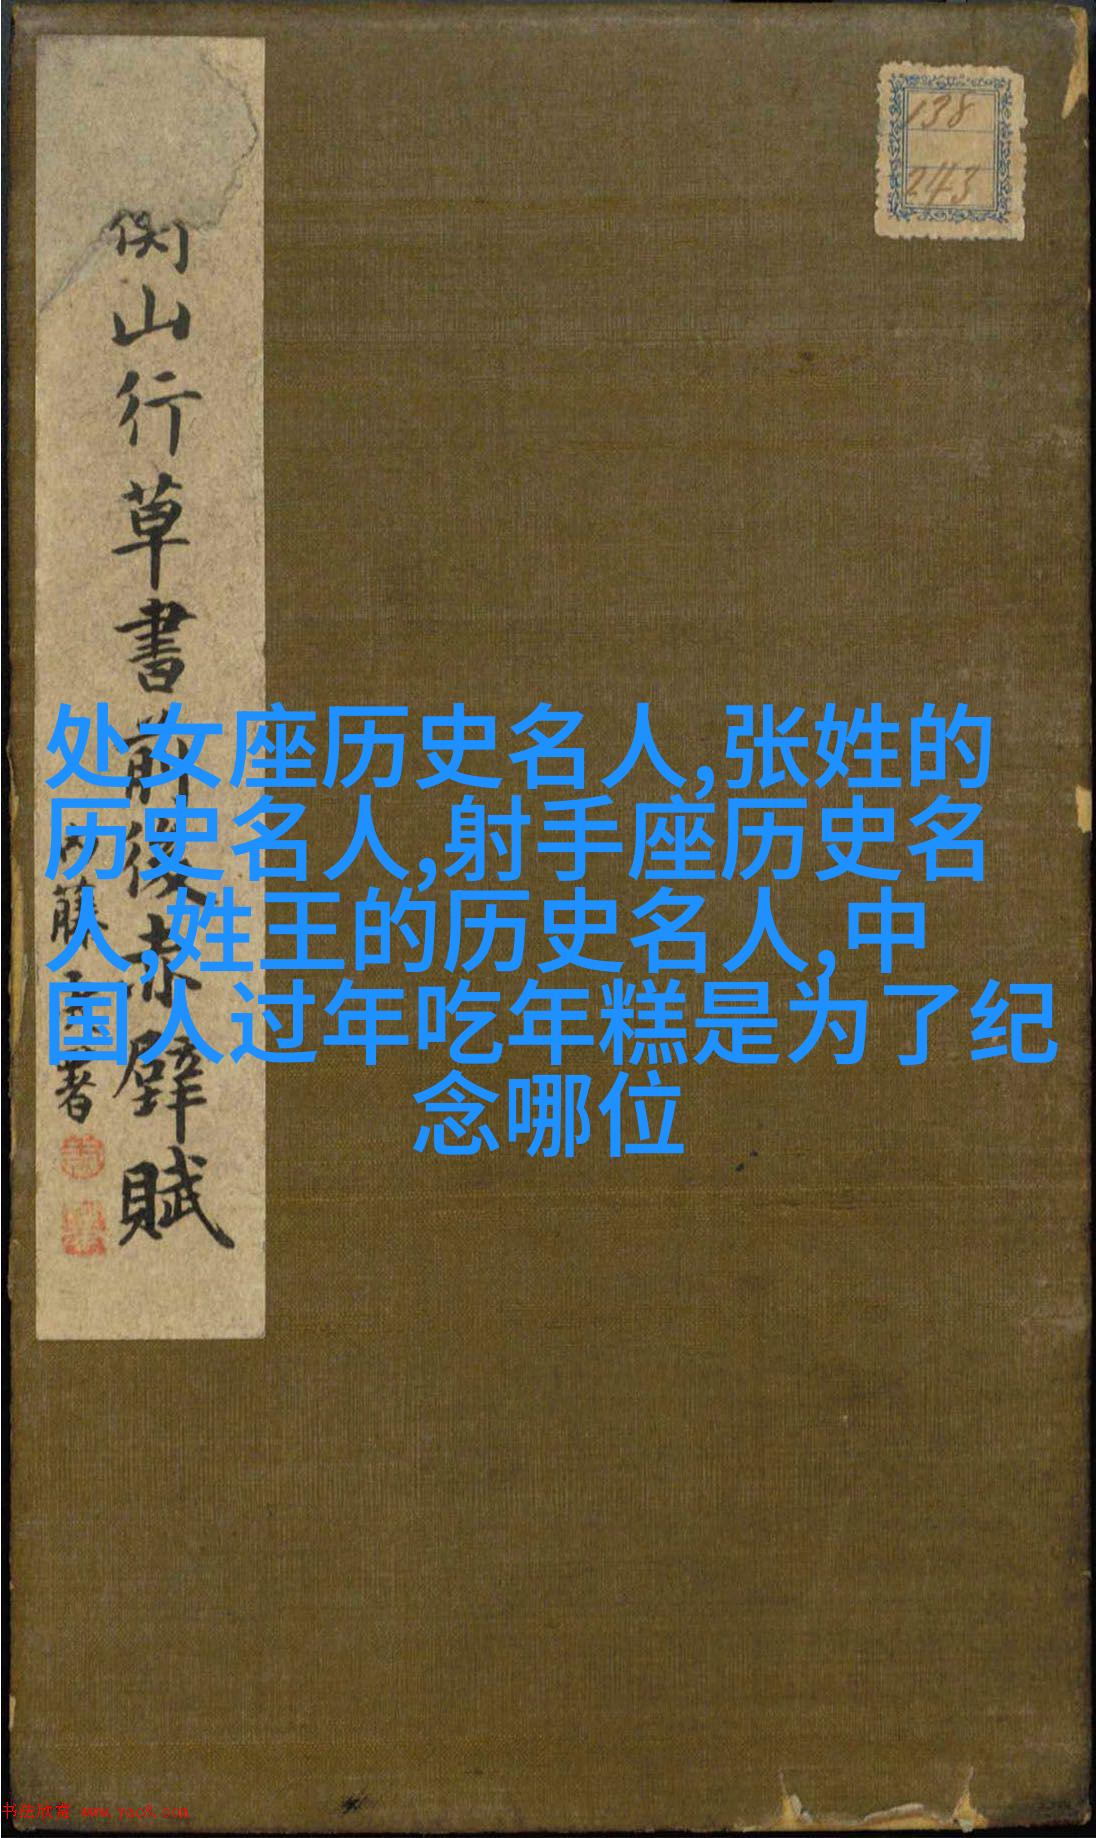 衡山行草書前後赤壁賦
内藤虎署
138
243
处女座历史名人,张姓的
历史名人,射手座历史名
人,姓王的历史名人,中
国人过年吃年糕是为了纪
念哪位
书法欣赏 www.yac8.com